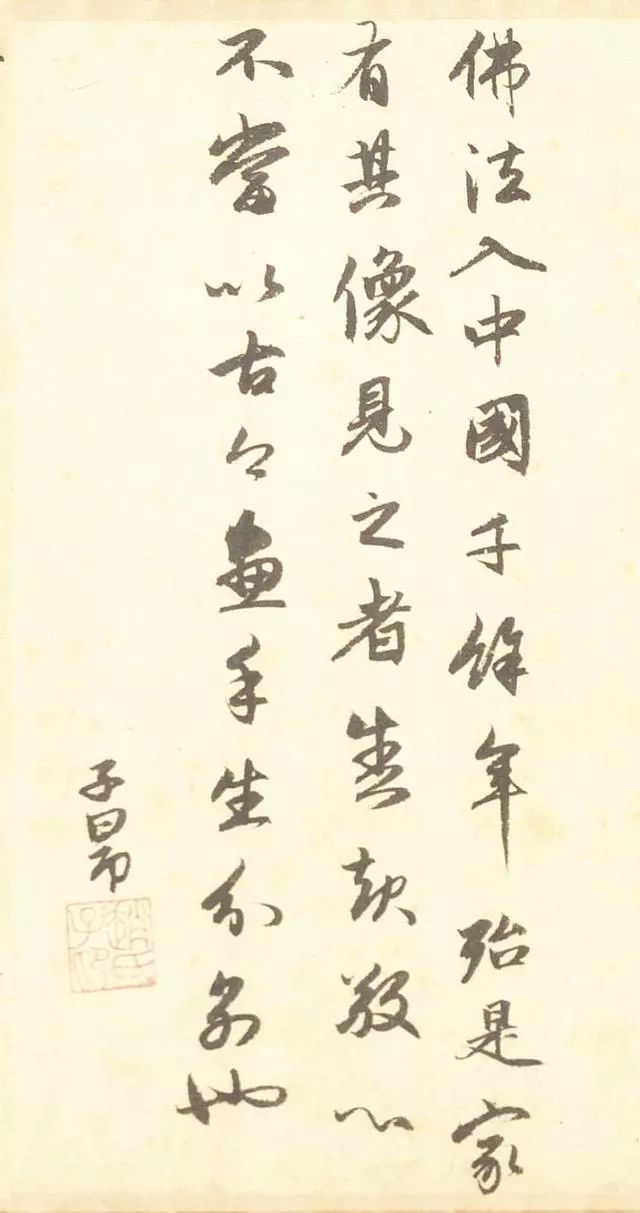 佛法入中國千餘年殆是家
有其像見之者莫不起敬心
不當以古今畫手生分別也
子昂
趙氏子昂